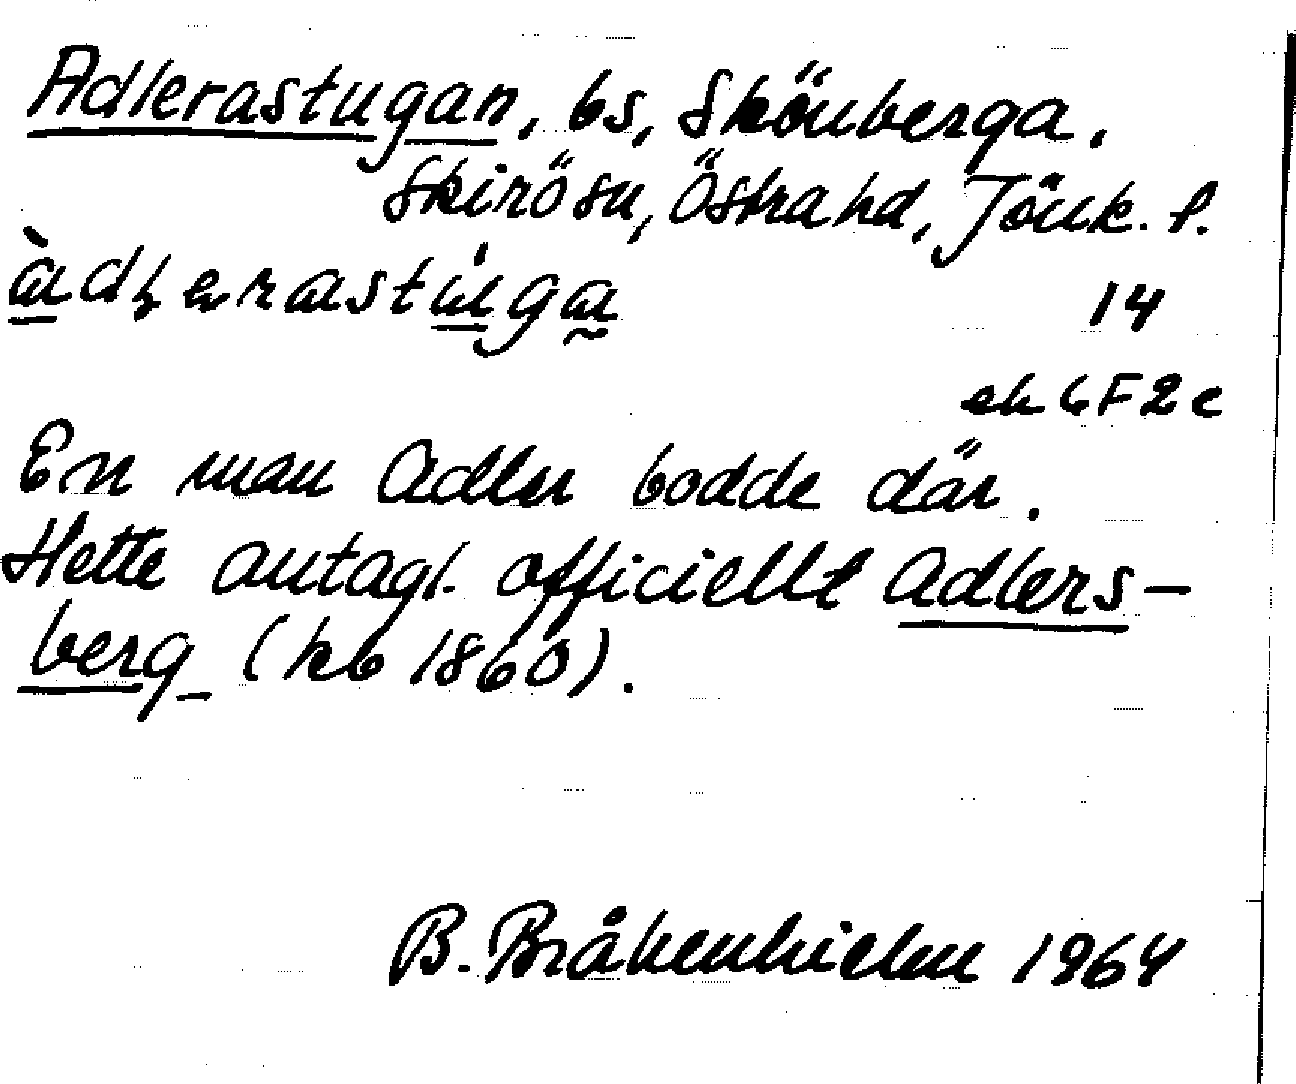 Adlerastugan, bs, Skönberga,
Skirösn, Östra hd, Jönk. l.
àdlerastúga
14
ek 6F2c
En man Adler bodde där.
Hette antagl. officiellt Adlers-
berg (kb 1860).
B. Bråkenhielm 1964